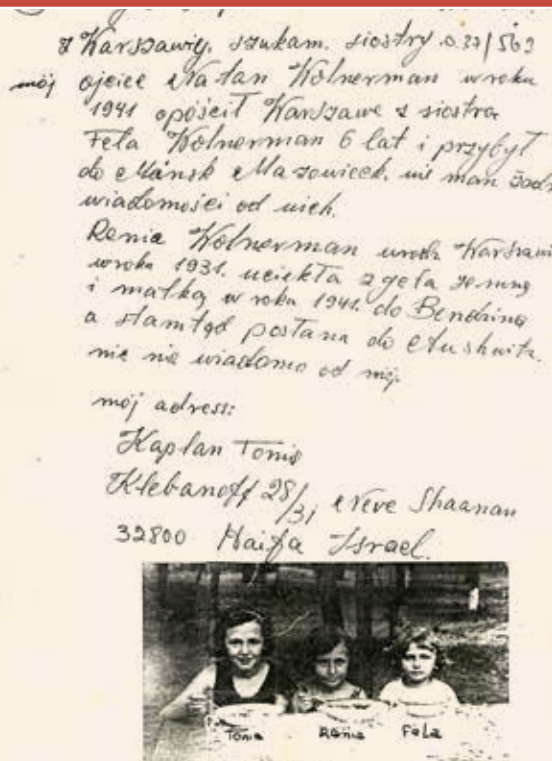 z Warszawy. szukam. siostry
mój ojciec Natan Wolnerman w roku
1941 opóścił Warszawe z siostra
Fela Wolnerman 6 lat i przybył
do Mińsk Mazowieck. nie mam żadn
wiadomości od nich.
Renia Wolnerman urodz Warszawi
w roku 1931. uciekła z geta ze mną
i matką w roku 1941. do Bendzina
a stamtąd posłana do Aushwitz.
nic nie wiadomo od niej.
mój adress:
Kaplan Tonia
Klebanoff 28/31 Neve Shaanan
32800 Haifa Israel.
Tonia Renia Fela